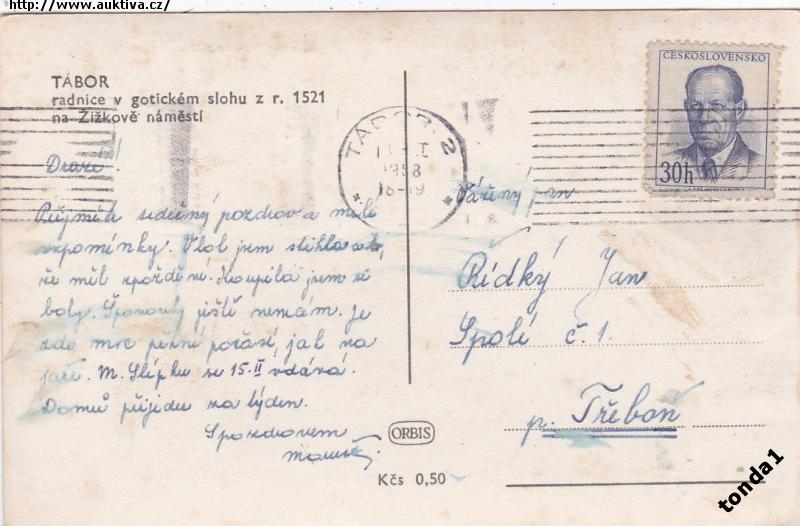 http://www.auktiva.cz/
TÁBOR
radnice v gotickém slohu z r. 1521
na Žižkově náměstí
ČESKOSLOVENSKO
30h
TÁBOR 2
1958
18-19
Drazí!
Přijměte srdečný pozdrav a milé
vzpomínky. Vlak jsem stihla
že měl zpoždění. Koupila jsem si
boty. jěště nemám. Je
zde moc pěkné počasí jak na
jaře. M. Slípku se 15.II vdává.
Domů přijedu za týden.
S pozdravem
Vážený pan
Řídký Jan
Spolí č. 1.
p. Třeboň
ORBIS
Kčs 0,50
tonda1